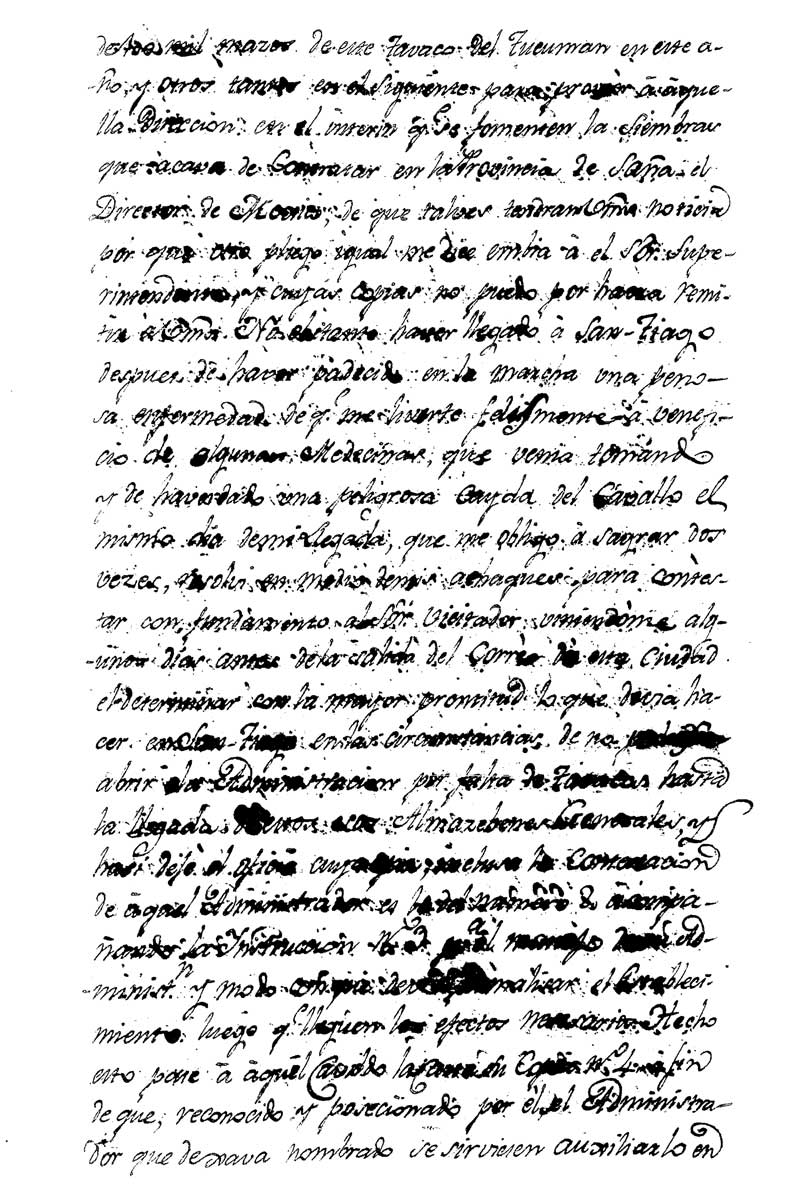 dos mil mazos de este Tavaco del Tucuman en este a-
ño, y otros tantos en el Siguiente para proveer â âque-
lla Direccion en el interin q.e se fomenten la Siembras
que acava de Contratar en la Provincia de Saña el
Director de Mooner, de que talves tendran Vms noticia
por que otro pliego igual me dice embia â el Sōr. Supe-
rintendente, y cuyas copias no puedo por haora remi-
tir â Vms. No obstante haver llegado â San-Tiago
despues de haver padecido en la marcha una peno-
sa enfermedad de q.e me liverte felismente â venefi-
cio de algunas Medecinas, que venia tomando
y de haverdado una peligrosa Cayda del Cavallo el
mismo dia demi llegada, que me obligo â sagrar dos
vezes, resolvi en medio demis achaques para contes-
tar con fundamento al Sōr. Vicitador, viniendome alg-
unos dias antes dela salida del Correo de esta Ciudad
el determinar con la mayor promitud lo que devia ha-
cer en San-Tiago en las circunstancias, de no
abrir la Administracion por falta de Tavacos hasta
la llegada de estos â los Almazebenes Generales, y
hasi dejè el oficio cuya copia inclusa la Contextacion
de âquel Administrador es la del número 2 âcompa-
ñando la Instruccion N.o 3 p.a el manejo de su Ad-
minist.n y modo con que deve formalisar el Establesi-
miento luego q.e lleguen los efectos necesarios. Hecho
esto pase â âquel Cavildo la Carta su Copia N.o 4 â fin
de que, reconocido y posecionado por èl, el Administra-
dor que dexava nombrado se sirviesen auxiliarlo en